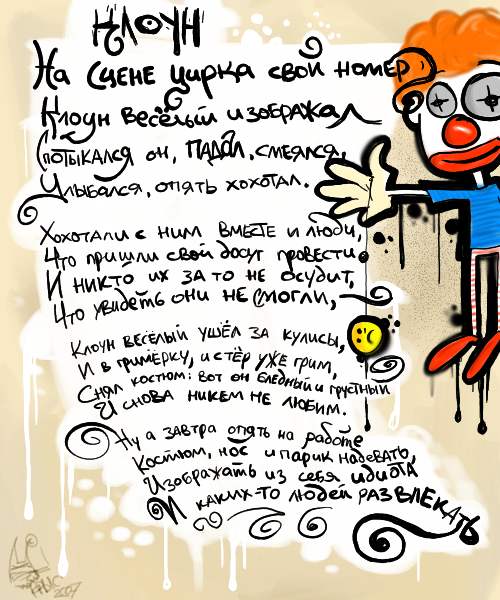 КЛОУН
На сцене цирка свой номер
Клоун весёлый изображал
Спотыкался он, падал, смеялся,
Улыбался, опять хохотал.
Хохотали с ним вместе и люди,
Что пришли свой досуг провести.
И никто их за то не осудит,
Что увидеть они не смогли,
Клоун весёлый ушёл за кулисы,
И в гримёрку, и стёр уже грим,
Снял костюм: вот он бледный и грустный
И снова никем не любим.
Ну а завтра опять на работе
Костюм, нос и парик надевать,
Изображать из себя идиота
И каких-то людей развлекать
2007